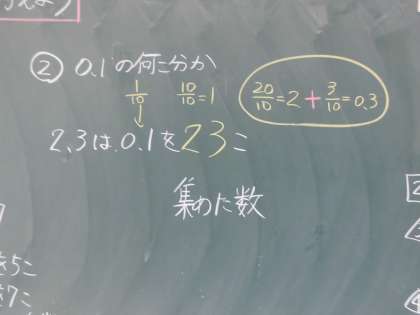 ② 0.1の何こ分か
1/10 10/10=1
20/10=2+3/10=0.3
2.3は0.1を23こ
集めた数
き5こ
き7こ